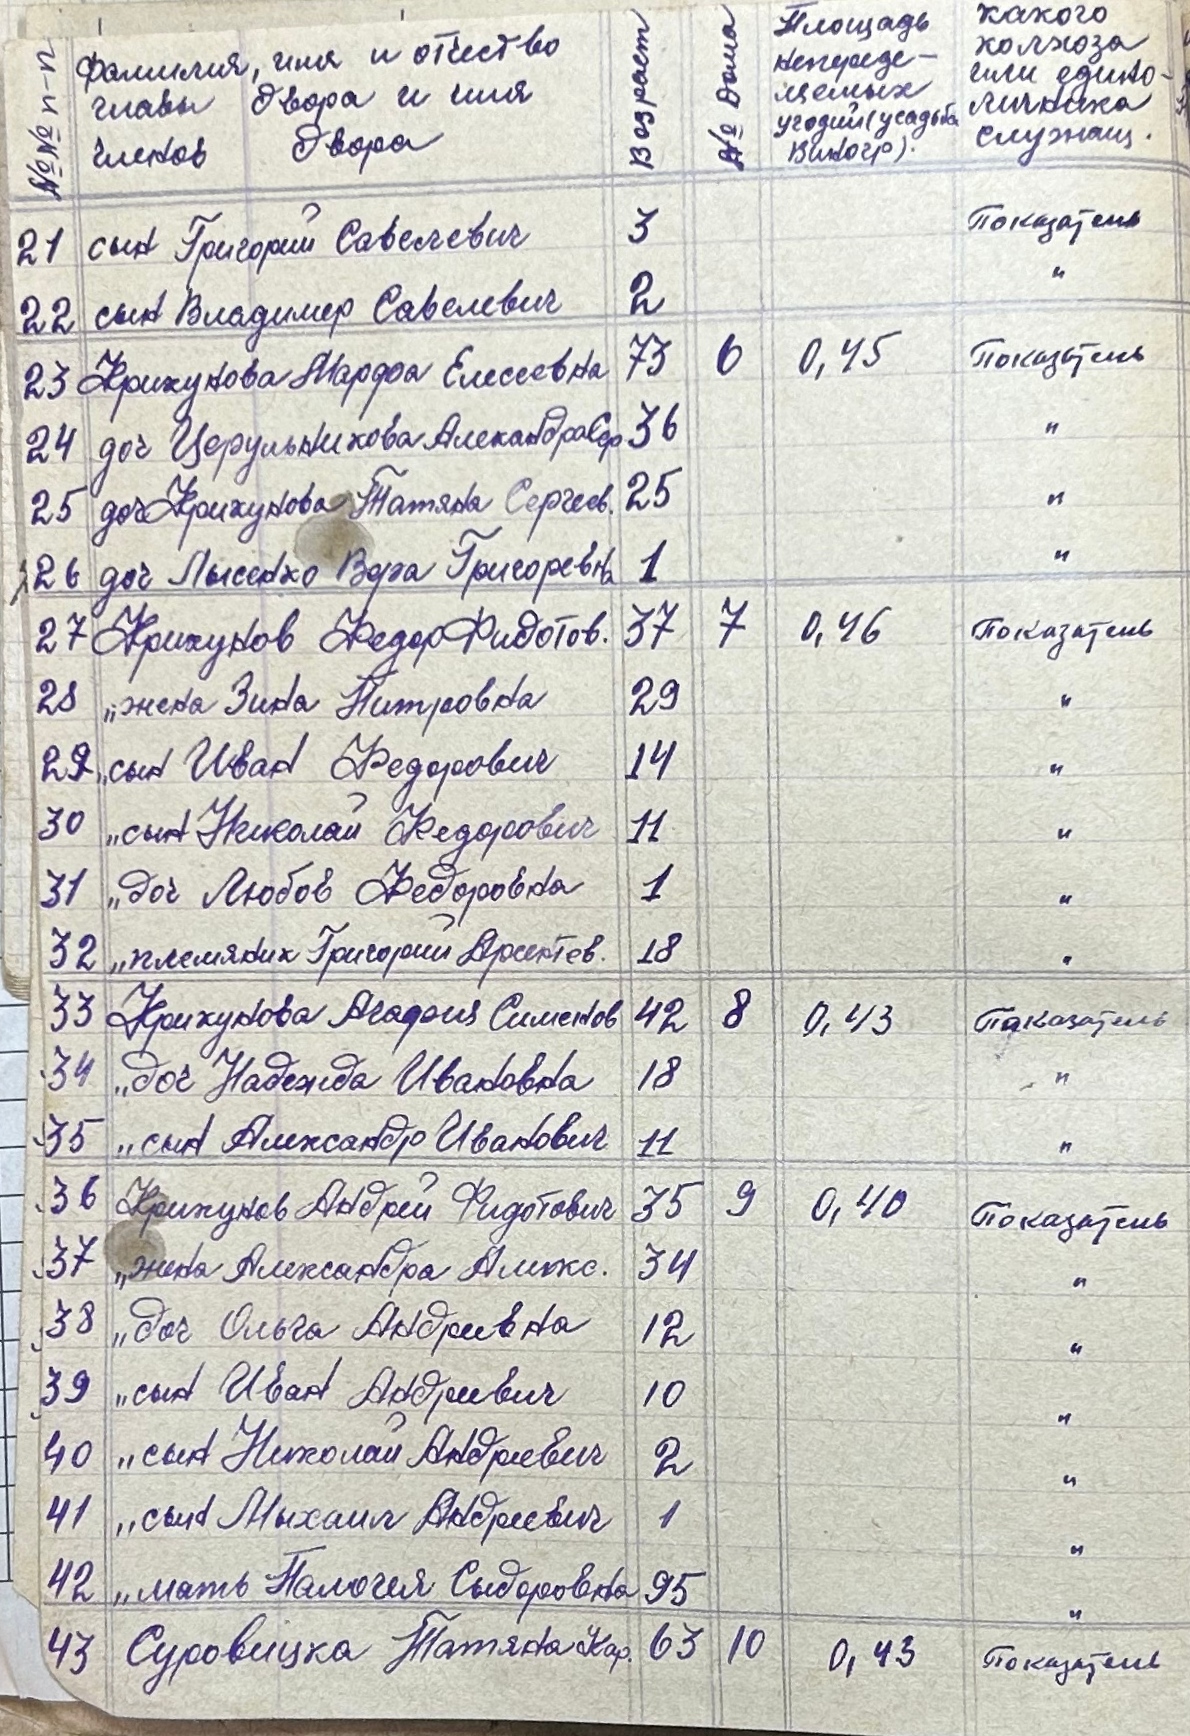 №№ п-п
Фамилия, имя и отчество
главы двора и имя
членов двора
Возраст
№ дома
Площадь
непереде-
лаемых
угодий (усадьба
виногр).
какого
колхоза
или едино-
личника
служащ.
21 сын Григорий Савелевич 3 Показатель
22 сын Владимер Савелевич 2 "
23 Крикунова Марфа Елесеевна 73 6 0,45 Показатель
24 доч Церульникова Александра Сер 36 "
25 доч Крикунова Татяна Сергеев. 25 "
26 доч Лысенко Вера Григоревна 1 "
27 Крикунов Федор Фидотов. 37 7 0,46 Показатель
28 „жена Зина Питровна 29 "
29 „сын Иван Федорович 14 "
30 „сын Николай Федорович 11 "
31 „доч Любов Федоровна 1 "
32 „племяник Григорий 18 "
33 Крикунова Агафия Сименов 42 8 0,43 Показатель
34 „доч Надежда Ивановна 18 "
35 „сын Александр Иванович 11 "
36 Крикунов Андрей Фидотович 35 9 0,40 Показатель
37 „жена Александра Алекс. 34 "
38 „доч Ольга Андревна 12 "
39 „сын Иван Андревич 10 "
40 „сын Николай Андревич 2 "
41 „сын Мыхаил Андревич 1 "
42 „мать Палагея Сыдоровна 95 "
43 Суровицка Татяна Кар. 63 10 0,43 Показатель